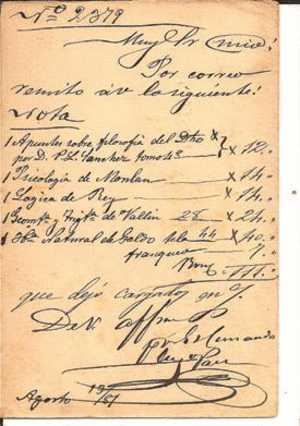 Nº 2379
Muy Sr mio:
Por correo
remito á v lo siguiente:
Nota
1 Apuntes sobre filosofia del Dro
por D. P. L. Sanchez tomo 4º x 12..
1 Psicologia de Monlau x 14..
1 Lógica de Rey x 14..
1 Geomtª y Trigª de Vallin 28 x 24..
1 Hª Natural de Galdo 44 x 40..
franqueo 7..
111..
que dejó cargados en
De V. affmo
Hernando
Agosto 19/81